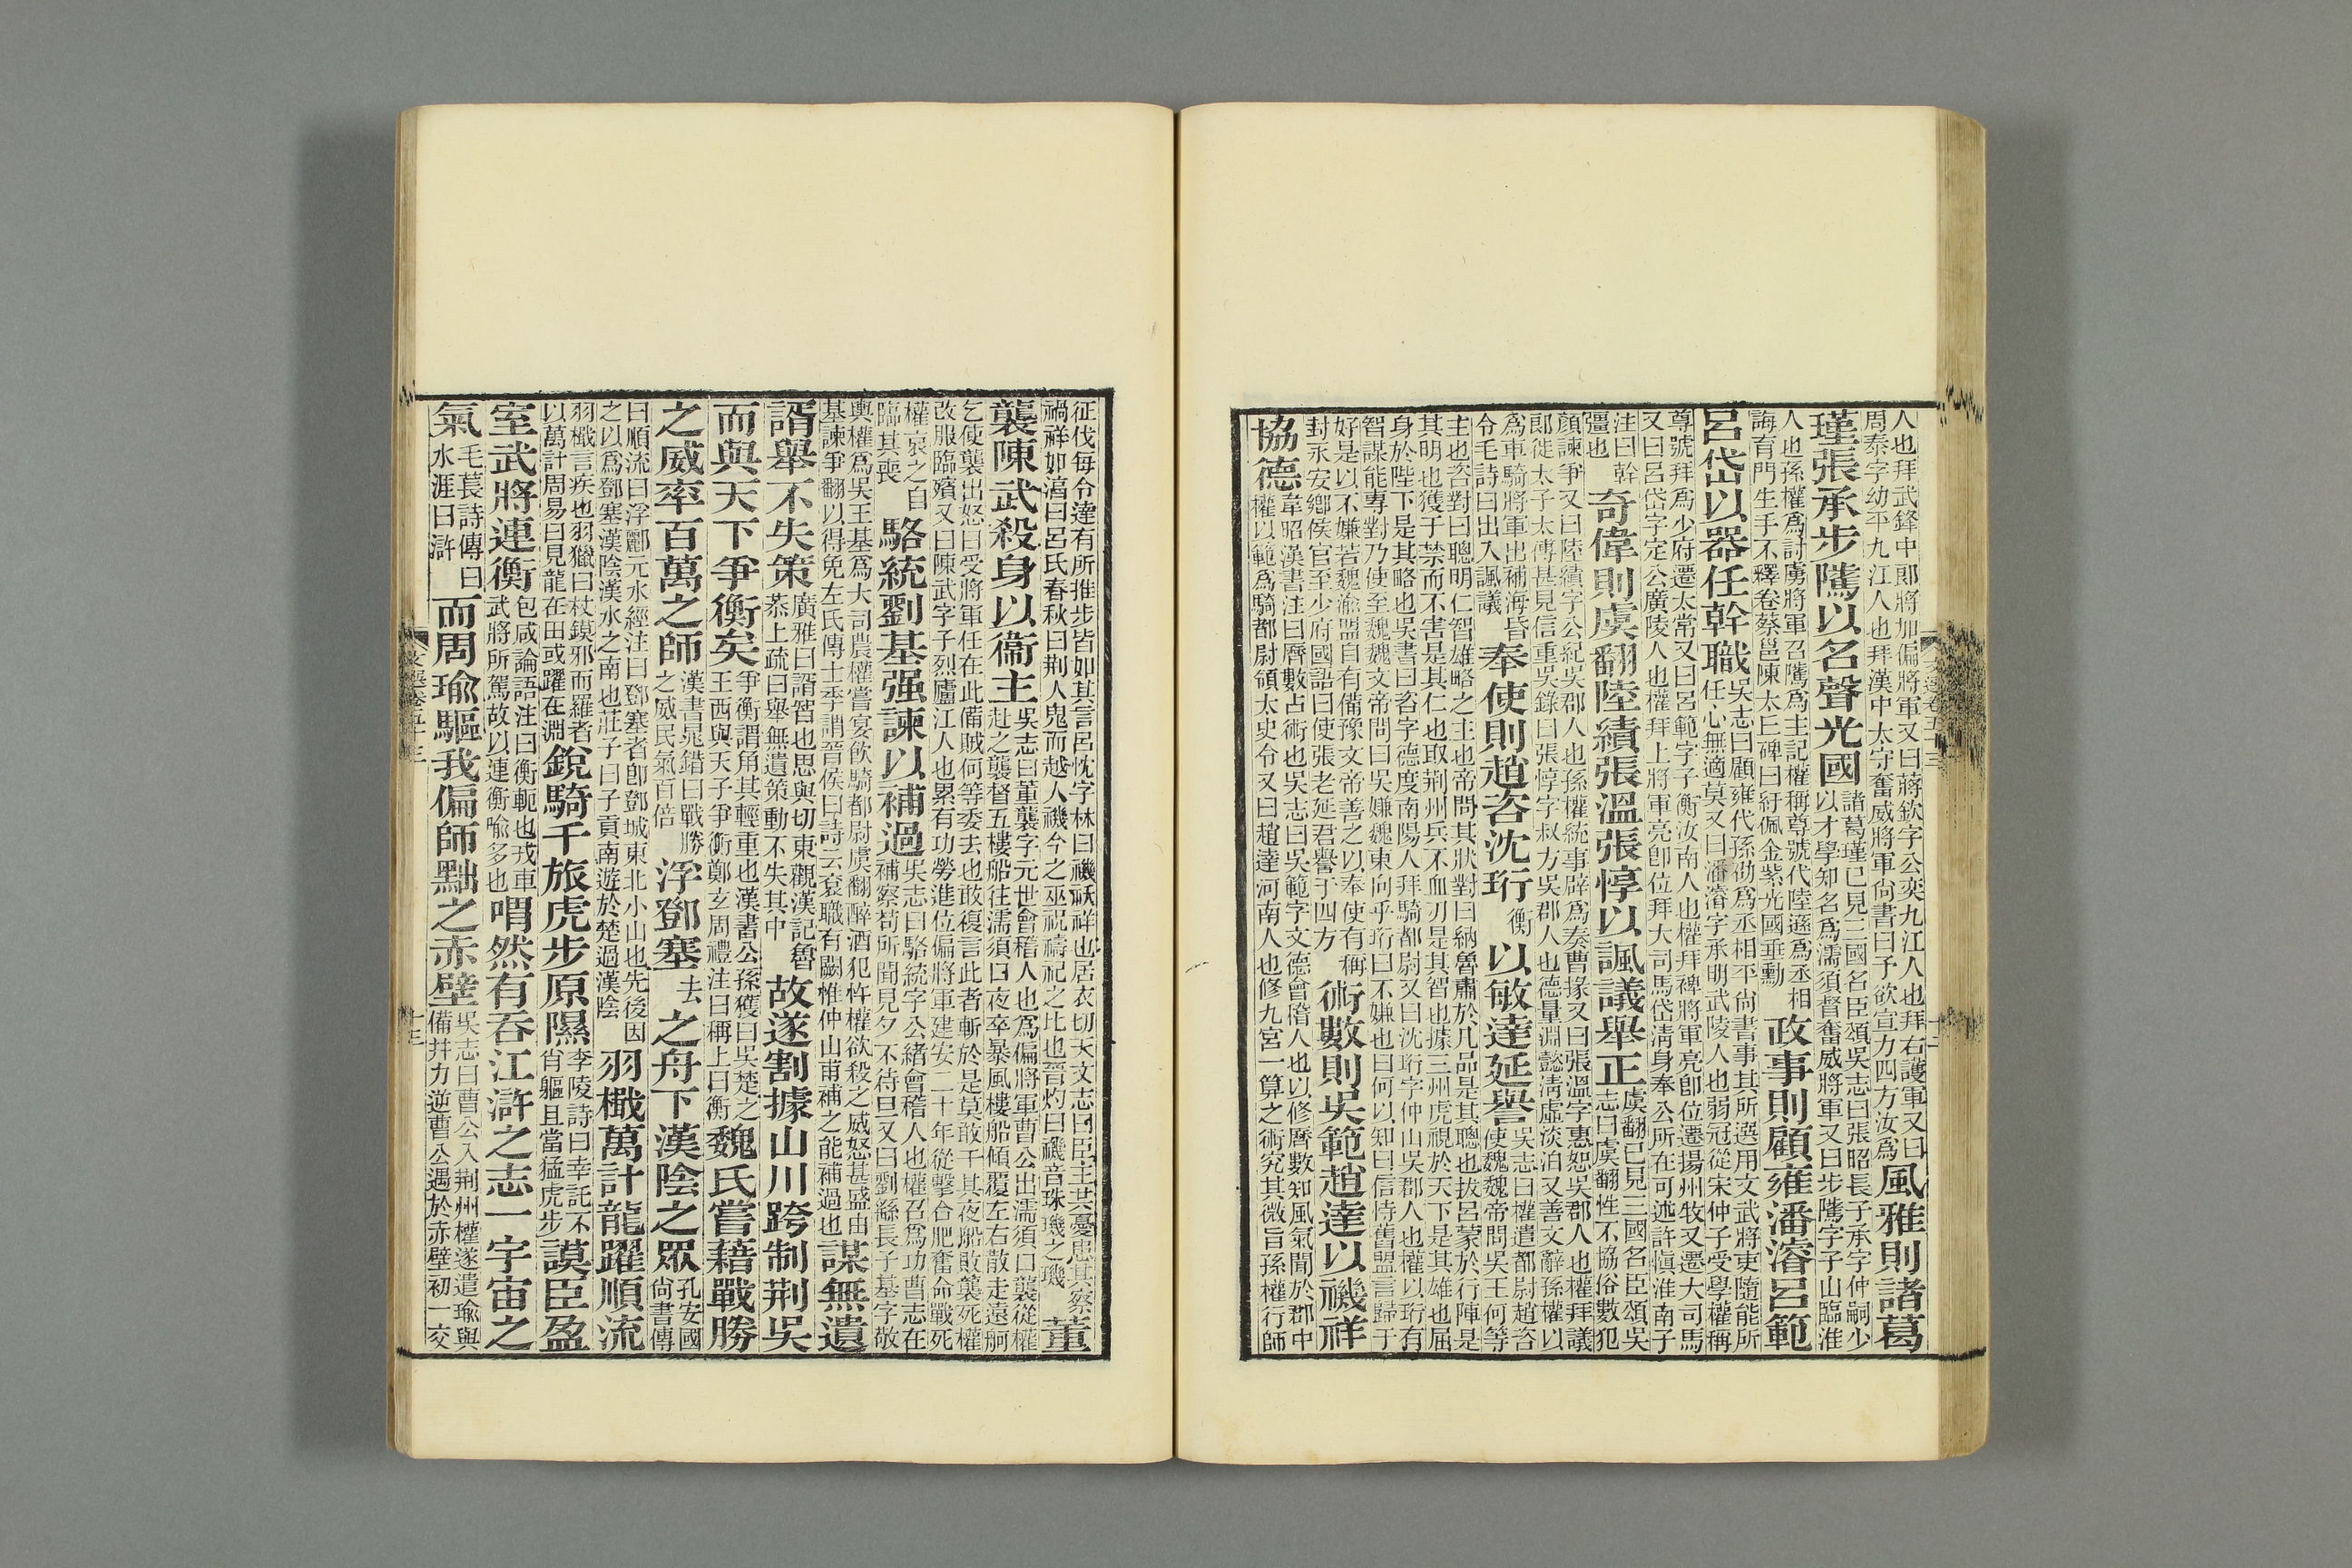 人也拜武鋒中郎將加偏將軍又曰蔣欽字公奕九江人也拜右護軍又曰周泰字幼平九江人也拜漢中太守奮威將軍尚書曰予欲宣力四方汝爲風雅則諸葛
瑾張承步隲以名聲光國諸葛瑾已見三國名臣頌吳志曰張昭長子承字仲嗣少以才學知名爲濡須督奮威將軍又曰步隲字子山臨淮
人也孫權爲討虜將軍召隲爲主記權稱尊號代陸遜爲丞相誨育門生手不釋卷蔡邕陳太丘碑曰紆佩金紫光國垂勳政事則顧雍潘濬呂範
呂岱以器任幹職吳志曰顧雍代孫劭爲丞相平尚書事其所選用文武將吏隨能所任心無適莫又曰潘濬字承明武陵人也弱冠從宋仲子受學權稱
尊號拜爲少府遷太常又曰呂範字子衡汝南人也權拜裨將軍亮卽位遷揚州牧又遷大司馬又曰呂岱字定公廣陵人也權拜上將軍亮卽位拜大司馬岱淸身奉公所在可述許愼淮南子
注曰幹彊也奇偉則虞翻陸績張溫張惇以諷議舉正虞翻已見三國名臣頌吳志曰虞翻性不協俗數犯
顏諫爭又曰陸績字公紀吳郡人也孫權統事辟爲奏曹掾又曰張溫字惠恕吳郡人也權拜議郎徙太子太傅甚見信重吳錄曰張惇字叔方吳郡人也德量淵懿淸虛淡泊又善文辭孫權以
爲車騎將軍出補海昏令毛詩曰出入諷議奉使則趙咨沈珩衡以敏達延譽吳志曰權遣都尉趙咨使魏魏帝問吳王何等
主也咨對曰聰明仁智雄略之主也帝問其狀對曰納魯肅於凡品是其聰也拔呂蒙於行陣是其明也獲于禁而不害是其仁也取荆州兵不血刃是其智也據三州虎視於天下是其雄也屈
身於陛下是其略也吳書曰咨字德度南陽人拜騎都尉又曰沈珩字仲山吳郡人也權以珩有智謀能專對乃使至魏魏文帝問曰吳嫌魏東向乎珩曰不嫌也曰何以知曰信恃舊盟言歸于
好是以不嫌若魏渝盟自有備豫文帝善之以奉使有稱封永安鄉侯官至少府國語曰使張老延君譽于四方術數則吳範趙達以禨祥
協德韋昭漢書注曰曆數占術也吳志曰吳範字文德會稽人也以修曆數知風氣聞於郡中權以範爲騎都尉領太史令又曰趙達河南人也修九宮一算之術究其微旨孫權行師
征伐每令達有所推步皆如其言呂忱字林曰禨祅祥也居衣切天文志曰臣主共憂患其察禨祥如淳曰呂氏春秋曰荆人鬼而越人禨今之巫祝禱祀之比也晉灼曰禨音珠璣之璣董
襲陳武殺身以衞主吳志曰董襲字元世會稽人也爲偏將軍曹公出濡須口襲從權赴之襲督五樓船往濡須口夜卒暴風樓船傾覆左右散走遠舸
乞使襲出怒曰受將軍任在此備賊何等委去也敢復言此者斬於是莫敢干其夜船敗襲死權改服臨殯又曰陳武字子烈廬江人也累有功勞進位偏將軍建安二十年從擊合肥奮命戰死
權哀之自臨其喪駱統劉基强諫以補過吳志曰駱統字公緒會稽人也權召爲功曹志在補察苟所聞見夕不待旦又曰劉繇長子基字敬
輿權爲吳王基爲大司農權嘗宴飲騎都尉虞翻醉酒犯忤權欲殺之威怒甚盛由基諫爭翻以得免左氏傳士季謂晉侯曰詩云衮職有闕惟仲山甫補之能補過也謀無遺
諝舉不失策廣雅曰諝智也思與切東觀漢記魯恭上疏曰舉無遺策動不失其中故遂割據山川跨制荆吳
而與天下爭衡矣爭衡謂角其輕重也漢書公孫獲曰吳楚之王西與天子爭衡鄭玄周禮注曰稱上曰衡魏氏嘗藉戰勝
之威率百萬之師漢書晁錯曰戰勝之威民氣百倍浮鄧塞去之舟下漢陰之眾孔安國尚書傳
曰順流曰浮酈元水經注曰鄧塞者卽鄧城東北小山也先後因之以爲鄧塞漢陰漢水之南也莊子曰子貢南遊於楚過漢陰羽檝萬計龍躍順流
羽檝言疾也羽獵曰杖鏌邪而羅者以萬計周易曰見龍在田或躍在淵銳騎千旅虎步原隰李陵詩曰幸託不肖軀且當猛虎步謨臣盈
室武將連衡包咸論語注曰衡軛也戎車武將所駕故以連衡喻多也喟然有吞江滸之志一宇宙之
氣毛萇詩傳曰水涯曰滸而周瑜驅我偏師黜之赤壁吳志曰曹公入荆州權遂遣瑜與備并力逆曹公遇於赤壁初一交